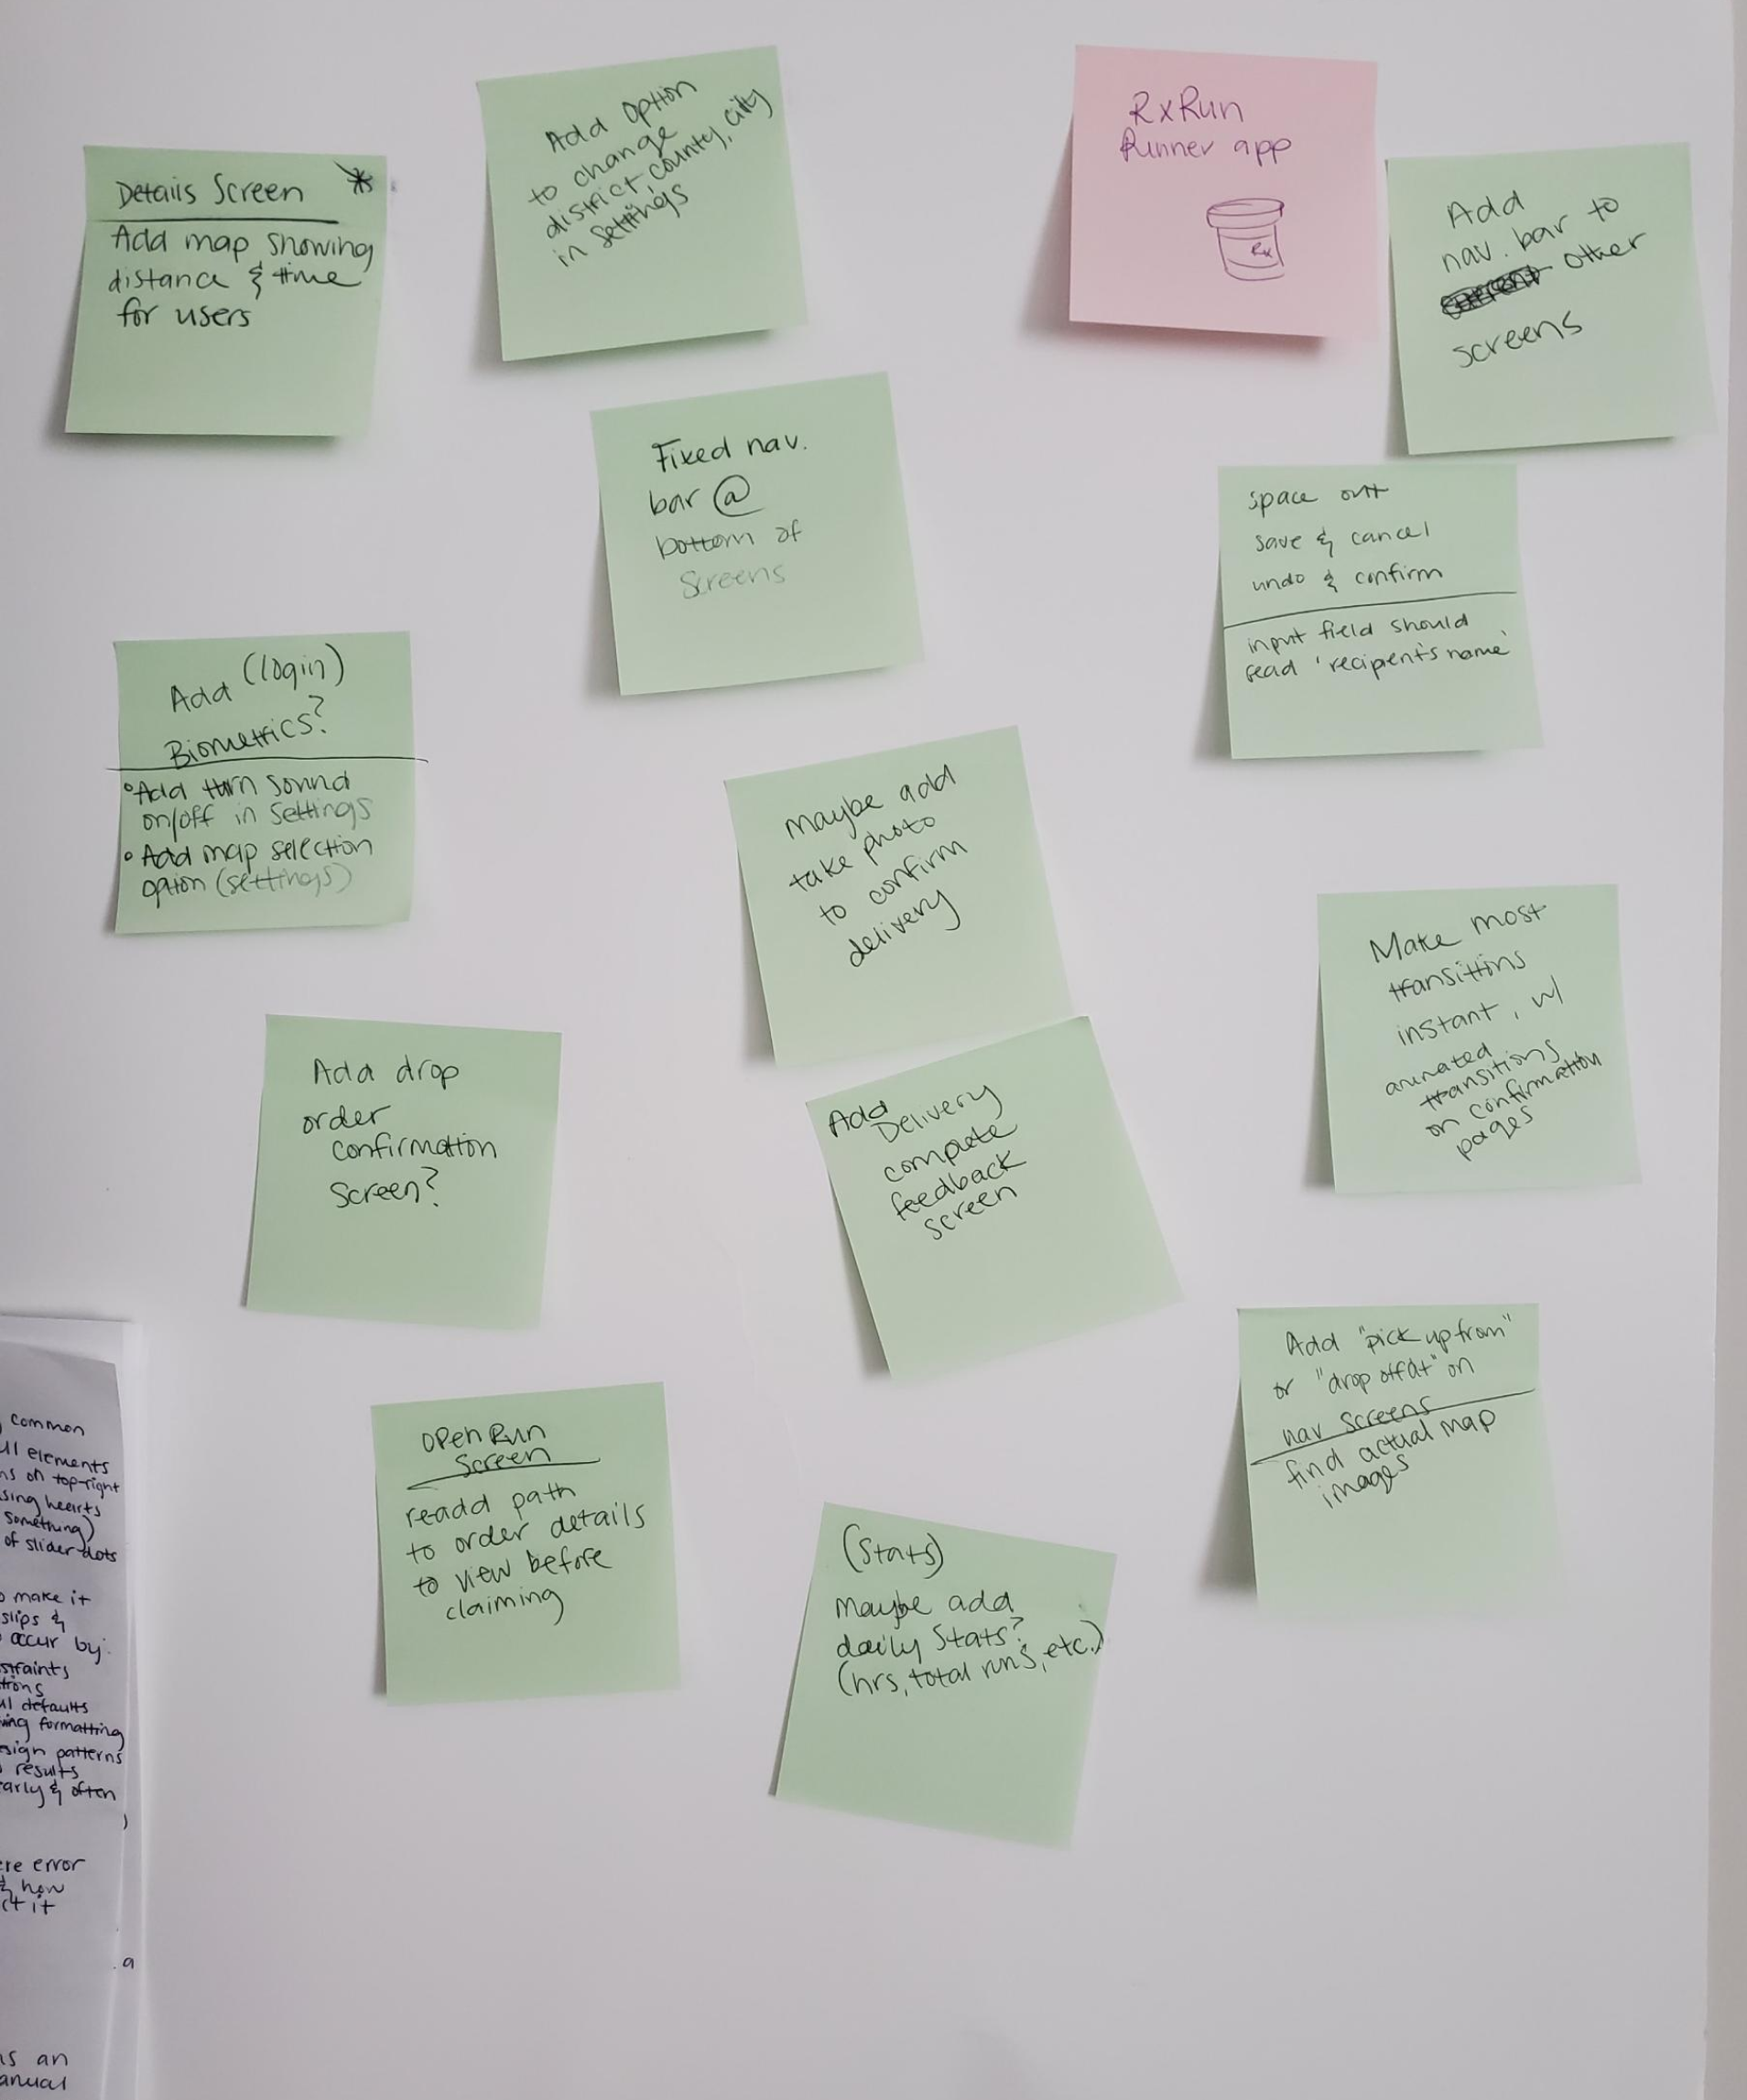 Details Screen *
Add map showing
distance & time
for users
Add Option
to change
district, county, city
in settings
RxRun
Runner app
Rx
Add
nav. bar to
other
screens
Fixed nav.
bar @
bottom of
Screens
space out
save & cancel
undo & confirm
input field should
read 'recipent's name'
Add (login)
Biometrics?
• Add turn sound
on/off in settings
• Add map selection
option (settings)
Maybe add
take photo
to confirm
delivery
Make most
transitions
instant, w/
animated
transitions
on confirmation
pages
Add drop
order
confirmation
Screen?
Add Delivery
complete
feedback
screen
Add "pick up from"
or "drop off at" on
nav screens
find actual map
images
Open Run
Screen
readd path
to order details
to view before
claiming
(Stats)
Maybe add
daily stats?
(hrs, total runs, etc.)
common
elements
on top-right
hearts
something)
of slider dots
make it
slips &
occur by:
defaults
formatting
patterns
results
early & often
)
error
& how
it
a
an